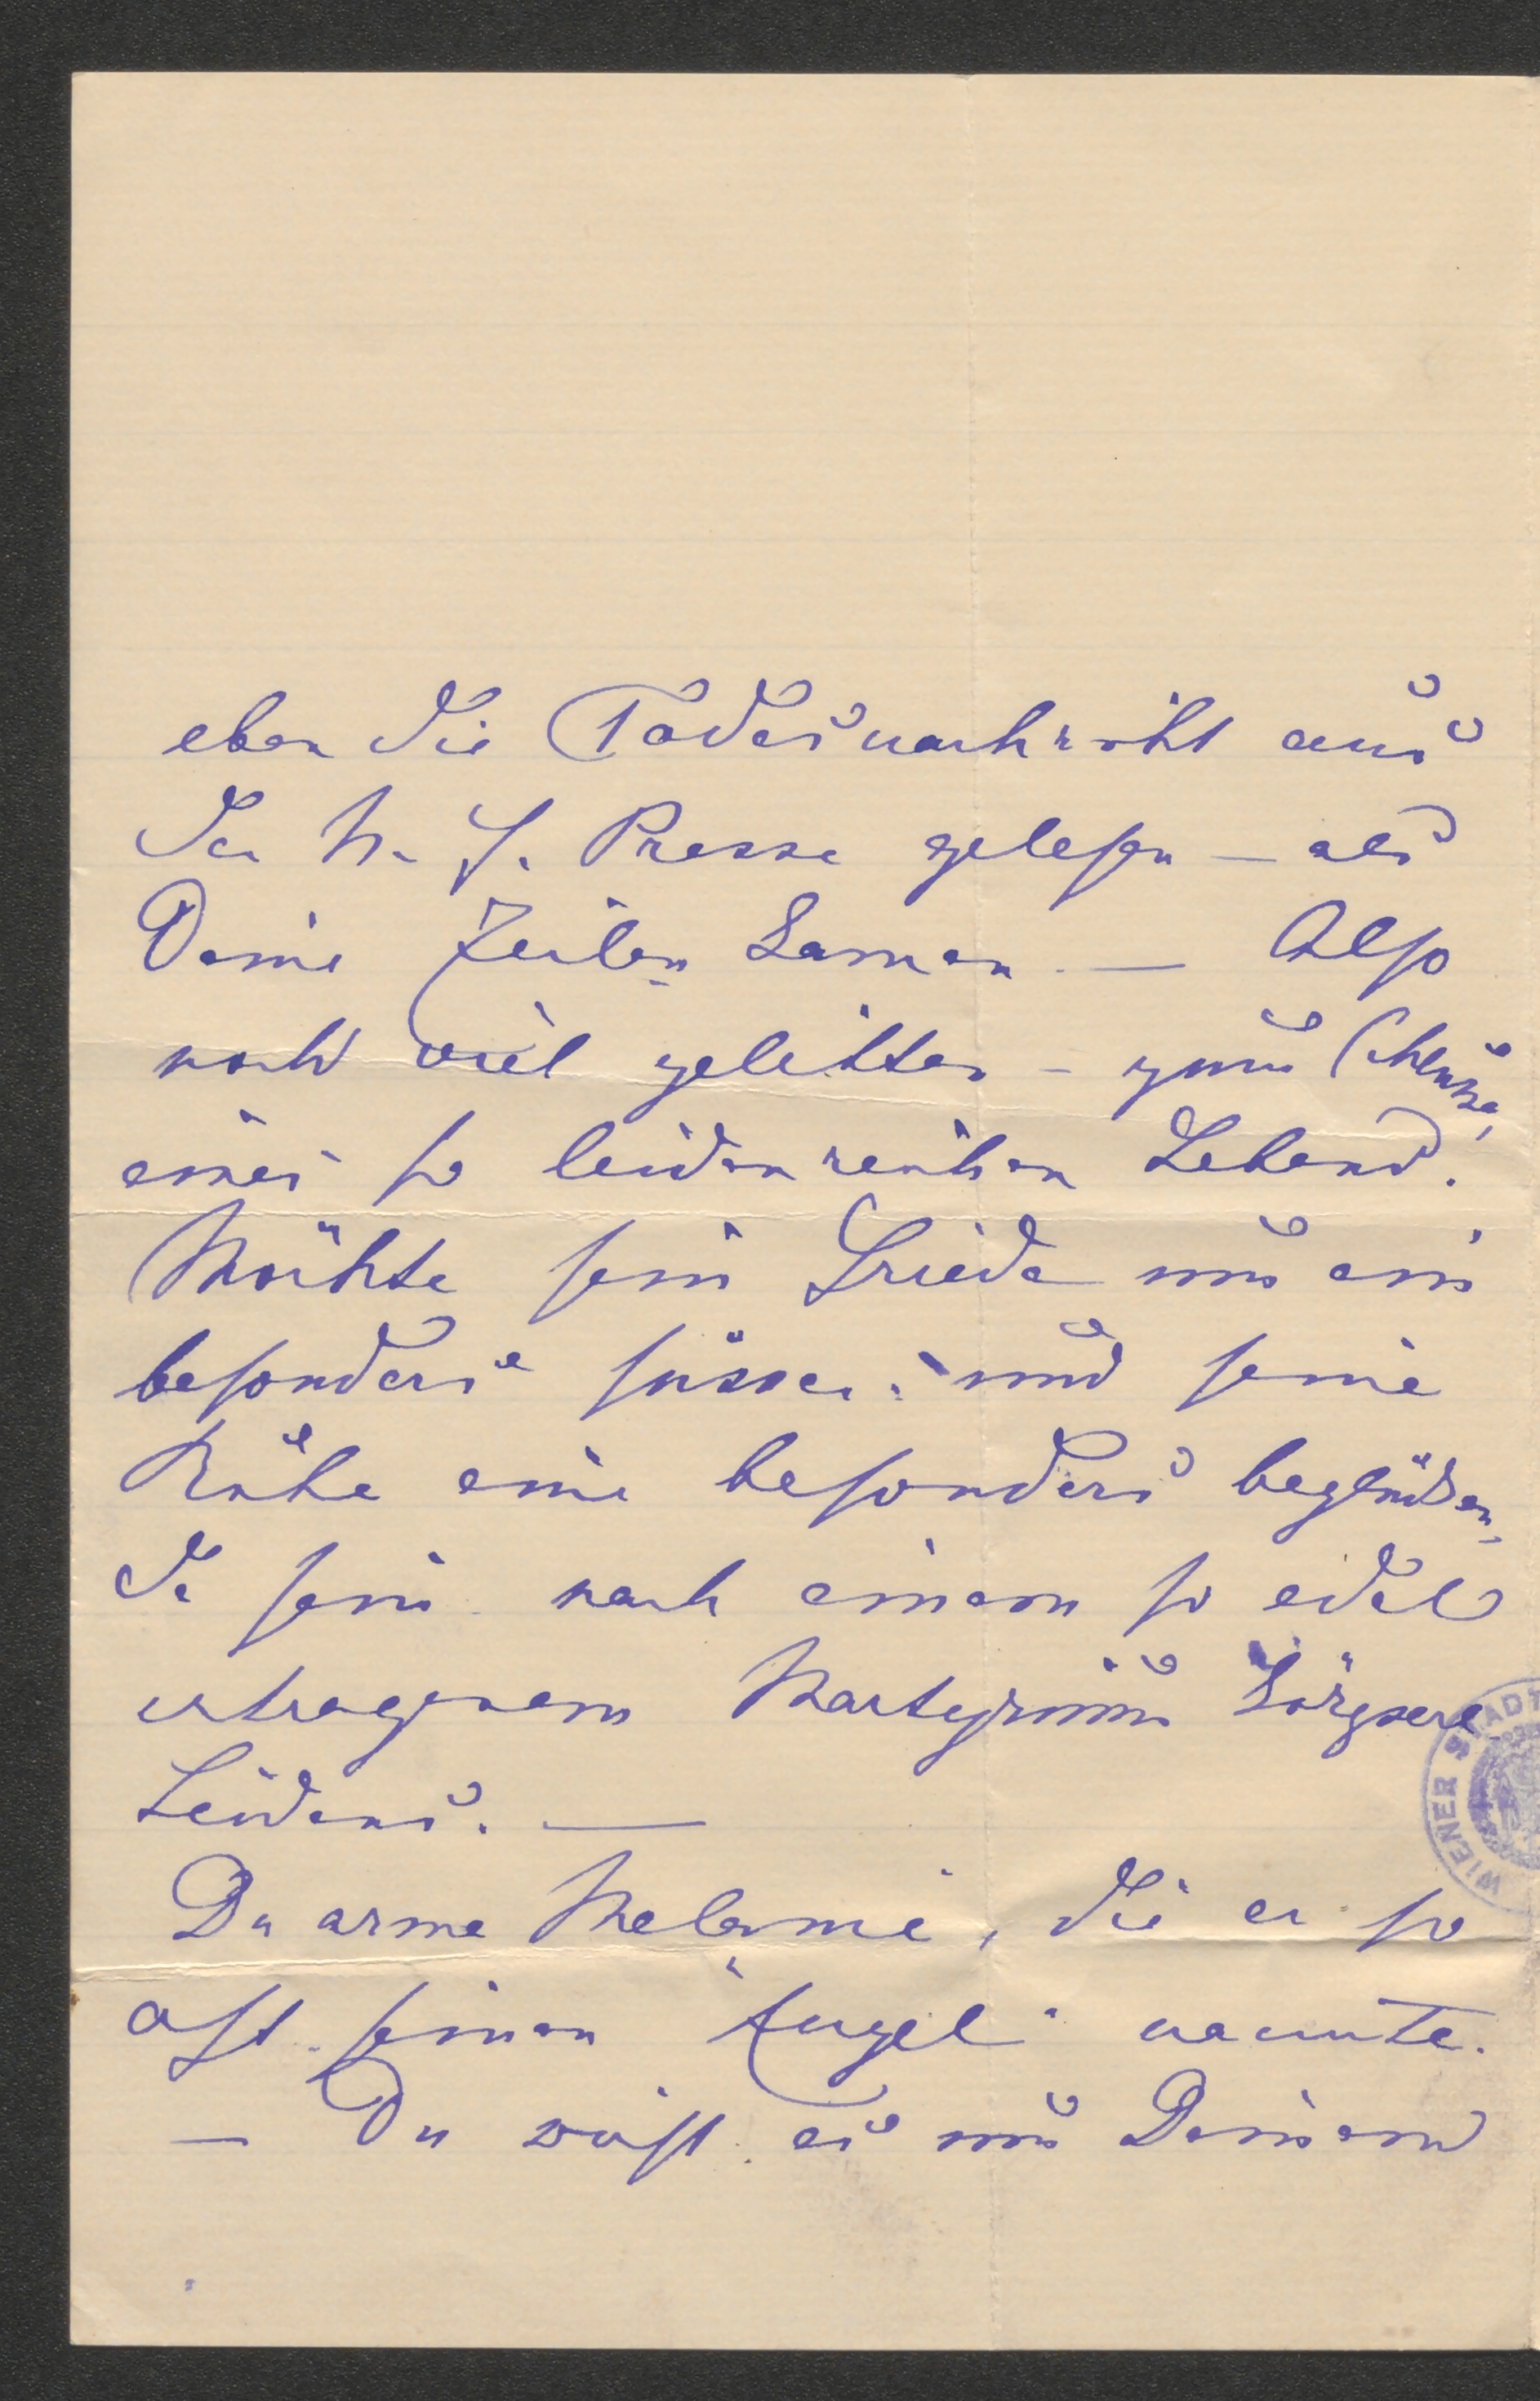 eben die Todesnachricht aus
der N. F. Presse gelesen – als
Deine Zeilen kamen. – Also
noch viel gelitten – zum Schlusse
eines so leidenreichen Lebens.
Möchte sein Friede nun ein
besonders süsser und seine
Ruhe eine besonders beglücken-
de sein nach einem so edel
ertragenem Martyrium körperl.
Leidens. —
Du arme Melanie, die er so
oft seinen "Engel" nannte.
– Du weißt es nun Deinem
WIENER STADT